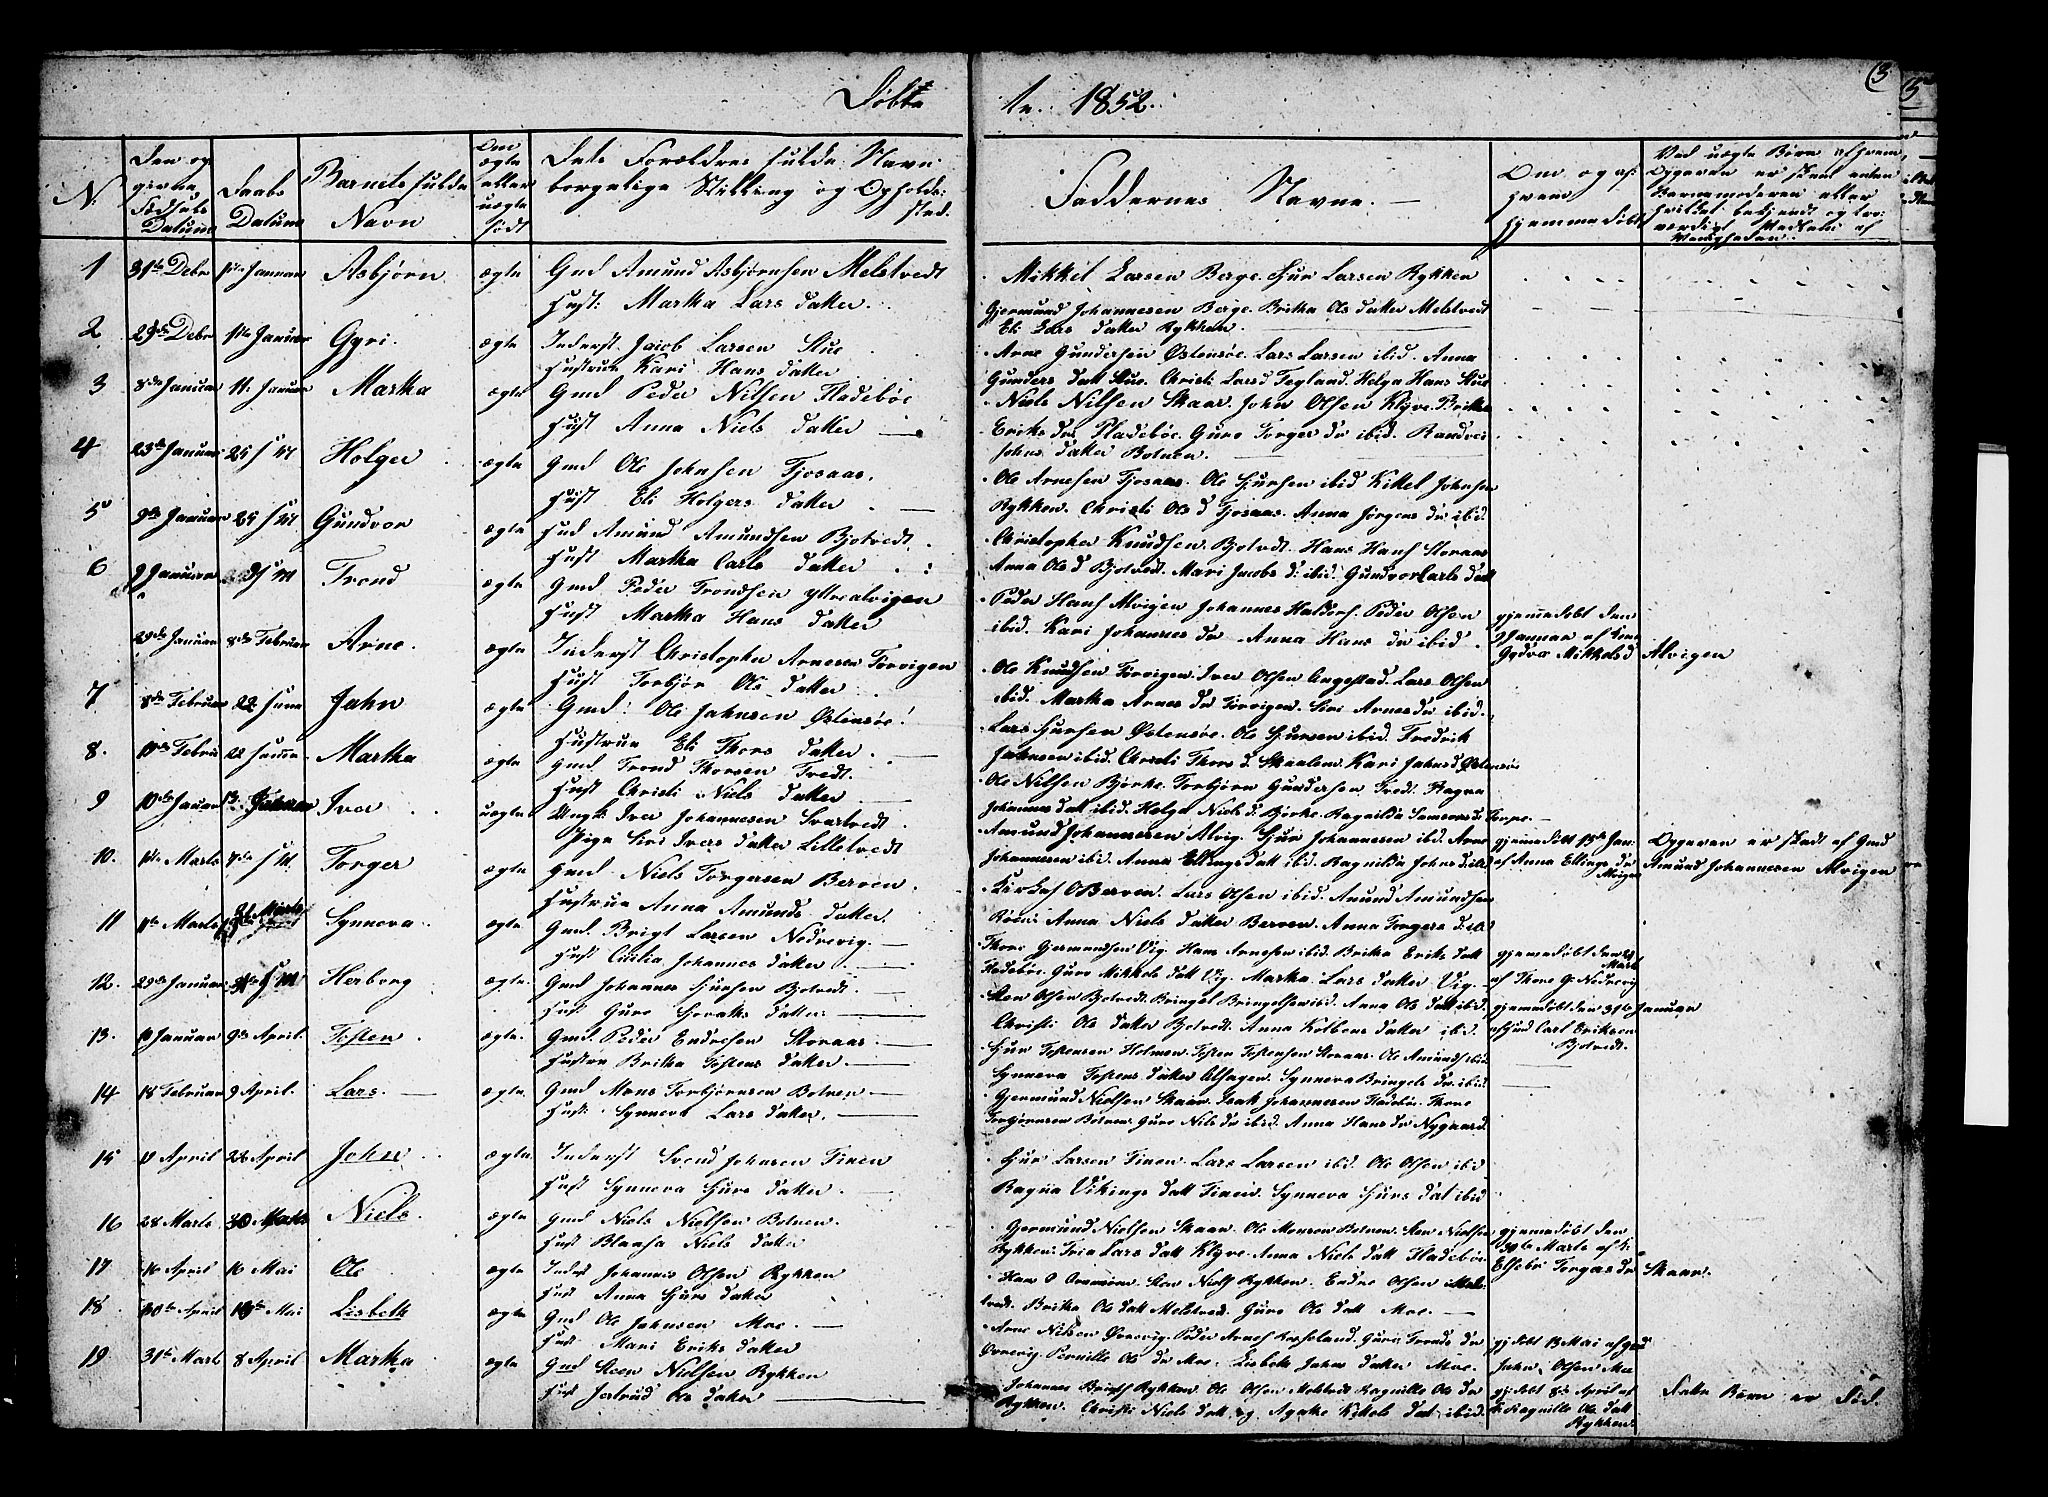 Døbte
1852.
3
5
N.
Den op
givne
Fødsels
Datum
Daabs
Datum
Barnets fulde
Navn
Om
ægte
eller
uægte
født
Dets Forældres fulde Navn
borgerlige Stilling og Opholds-
sted.
Faddernes Navne.
Om og af
hvem
hjemmedøbt
Ved uægte Børn af hvem
Opgaven er skeet enten
Barnemoderen eller
1 31te Debr 1ste Januar Asbjørn ægte Gmd Amund Asbjørnsen Melstvedt
Hust: Martha Lars datter
Mikkel Larsen Berge. Sjur Larsen Rykken
Gjermund Johannesen Berge. Britha Ols datter Melstvedt
Eli Lars datter Rykken
2 29de Debr 1ste Januar Gyri. ægte Inderst Jacob Larsen Stue
Hustrue Kari Hans datter
Arne Gundersen Østensøe. Lars Larsen ibid. Anna
Gunders datt Stue. Christi Larsd Tegland. Helga Hans Stue
3 8de Januar 11 Januar Martha ægte Gmd Peder Nilsen Fladebøe
Hust Anna Niels datter
Niels Nilsen Skaar. John Olsen Klyve. Britha
Eriks dr Fladebøe. Guro Torges dr ibid. Randvei
Johns datter Botnen.
4 23de Januar 25 s M Holger ægte Gmd Ole Johnsen Tjosaas.
Hust Eli Holgers datter
Ole Arnesen Tjosaas. Ole Sjursen ibid Kittel Johnsen
Rykken. Christi Ols d Tjosaas. Anna Jørgens dr ibid.
5 9de Januar 25 s M Gundvor ægte Hmd Amund Amundsen Bjotvedt.
Hust Martha Carls datter
Christopher Knudsen Bjotvedt. Hans Hans Storaas
Anna Ols d Bjotvedt. Mari Jacobs d: ibid. Gundvor Carls datt
6 9 Januar s M Trond ægte Gmd Peder Trondsen Ytrealvigen
Hust Martha Hans datter
Peder Hans Alvigen Johannes Haldors. Peder Olsen
ibid. Kari Johannes dr Anna Hans dr ibid.
hjemmedøbt den
9 Januar af Kone
Gydve Mikkels d Alvigen
29de Januar 8de Februar Arne. ægte Inderst Christopher Arnesen Torvigen
Hust Torbjør Ols datter
Ole Knudsen Torvigen. Iver Olsen Augestad. Lars Olsen
ibid. Martha Arnes dr Torvigen. Siri Arnes dr ibid.
7 8de Februar 22 Jahn ægte Gmd: Ole Jahnsen Østensøe!
Hustrue Eli Thors datter
Lars Sjursen Østensøe. Ole Sjursen ibid. Fredrik
Jahnsen ibid. Christi Thors d. Skaalem. Kari Jahns d Østensøe
8. Februar 22 Martha ægte Gmd Trond Thorsen Tvedt.
Hust Christi Niels datter
Ole Nilsen Bjørke. Torbjørn Gundersen Tvedt. Ragna
Johannes datt ibid. Helga Niels d. Bjørke. Ragnilda
9 10de Januar Iver uægte Ungk: Iver Johannesen Svartvedt
Pige Siri Ivers datter Lilletvedt
Amund Johannesen Alvig. Sjur Johannesen ibid. Arne
Johannesen ibid. Anna Ellings datt ibid. Ragnilda Johns d: ibid
hjemmedøbt Jan:
af Anna Ellings dr
Alvigen
Opgaven er skeedt af Gmd
Amund Johannesen Alvigen
10. Marts s M Torger ægte Gmd Niels Torgersen Berven.
Hustrue Anna Amunds datter
Berven. Lars Olsen ibid. Amund Amundsen
Anna Niels datter Berven. Anna Torgers d: ibid
11 Marts Synneva ægte Gmd. Brigt Larsen Nedrevig.
Hust Cicilia Johannes datter
Thore Germundsen Vig. Hans Arnesen ibid. Britha Eriks datt
Fladebøe. Guro Mikkels datt Vig. Martha Lars datter Vig.
hjemmedøbt den
Marts
af Thore G. Nedrevig
12. 29de Januar Herborg ægte Gmd Johannes Sjursen Bjotvedt.
Hust Guro datter
Sten Olsen Bjotvedt. Bringel Bringelsen ibid. Anna Ols datt ibid.
Christi Ols datter Bjotvedt. Anna Kolbens datter ibid.
hjemmedøbt den 31te Januar
af Hmd Carl Eriksen
Bjotvedt.
13. Januar 9de April Tosten ægte Gmd. Peder Endresen Storaas
Hustrue Britha Tostens datter
Sjur Tostensen Holmen. Tosten Tostensen Storaas. Ole Amunds ibid
Synneva Tostens datter Alsagen. Synneva Bringels dr ibid
14 18 Februar 9 April. Lars. ægte Gmd Mons Torbjørnsen Botnen
Hust: Synneva Lars datter.
Germund Nielsen Skaar. Isak Johannesen Fladebøe. Thore
Torbjørnsen Botnen. Guro Nils dr ibid. Anna Hans dr Nygaard
15 April April John ægte Inderst Svend Johnsen Finen
Hust Synneva Sjurs datter.
Sjur Larsen Finen. Lars Larsen ibid. Ole Olsen ibid
Ragna Vikings datt Finen. Synneva Sjurs dat ibid
16 28 Marts 30 Marts Niels ægte Gmd Niels Nielsen Botnen.
Hust Blansa Niels datter
Germund Nielsen Skaar. Ole Monsen Botnen. Sten Nielsen
Rykken. Lars datt Klyve. Anna Niels datt Fladebøe
hjemmedøbt den
30te Marts af K:
Elsebe Torgas dr Skaar.
17 16 April 16 Mai Ole ægte Inderst Johannis Olsen Rykken
Hust Anna Sjurs datter
Hans O Sten Niels Rykken. Endre Olsen Mels-
tvedt. Britha Ols datt Melstvedt. Guro Ols datt Moe.
18 30te April Mai Lisbeth ægte Gmd Ole Jahnsen Moe.
Hust Mari Eriks datter
Arne Nilsen Øvrevig. Peder Arnes Guro Tronds dr
Øvrevig. Pernille Ols dr Moe. Lisbeth Jahns datter Moe.
hj døbt 13 Mai af
Jahn Olsen Moe
19 31te Mart 8 April Martha ægte Gmd Steen Nielsen Rykken
Hust Jertrud Ols datter
Johannes Brigts Rykken. Ole Olsen Melstvedt Ragnille Ols dr
Rykken. Christi Niels datt og Agathe Kittels dat ibid.
hj døbt 8de April af
K: Ragnille Ols datt
Rykken.
Dette Barn er Død.